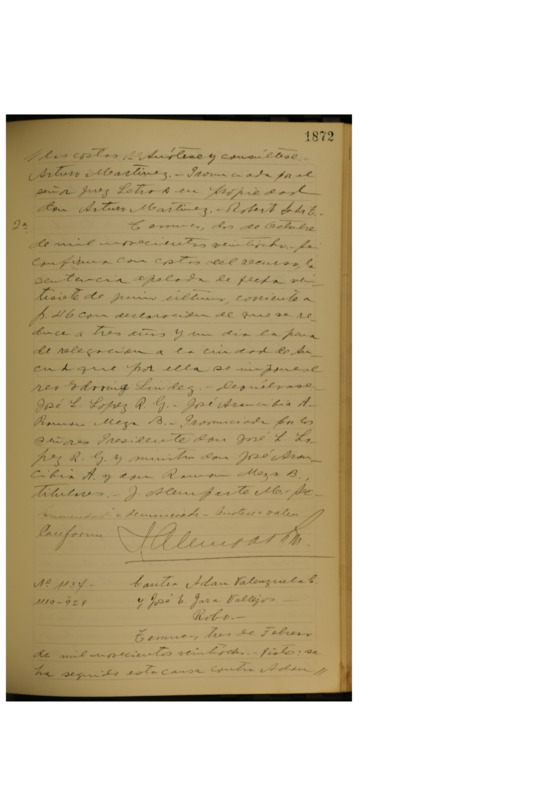 1872
// las costas. Anótese y consúltese.-
Arturo Martínez.- Pronunciada por el
señor Juez Letrado en propiedad
don Arturo Martínez.- Robert
2a. Temuco, dos de Octubre
de mil novecientos veintiocho.- Se
confirma con costas del recurso, la
sentencia apelada de fecha vein-
tisiete de junio último, corriente a
f. 46 con declaración de que se re-
duce a tres años y un día la pena
de relegación a la ciudad de
que por ella se impone al
reo Lindez.- Devuélvase.
José L. López R. G.- José Arancibia A.-
Ramon Meza B.- Pronunciada por los
señores Presidente don José L. Ló-
pez R. G. y ministros don José Aran-
cibia A. y don Ramon Meza B.,
titulares.- J.
Conforme
No. 1137- Contra Adan Valenzuela C.
1110-928 y José E. Jara Vallejos.-
Robo.-
Temuco, tres de Febrero
de mil novecientos veintiocho.- Vistos: se
ha seguido esta causa contra Adan //